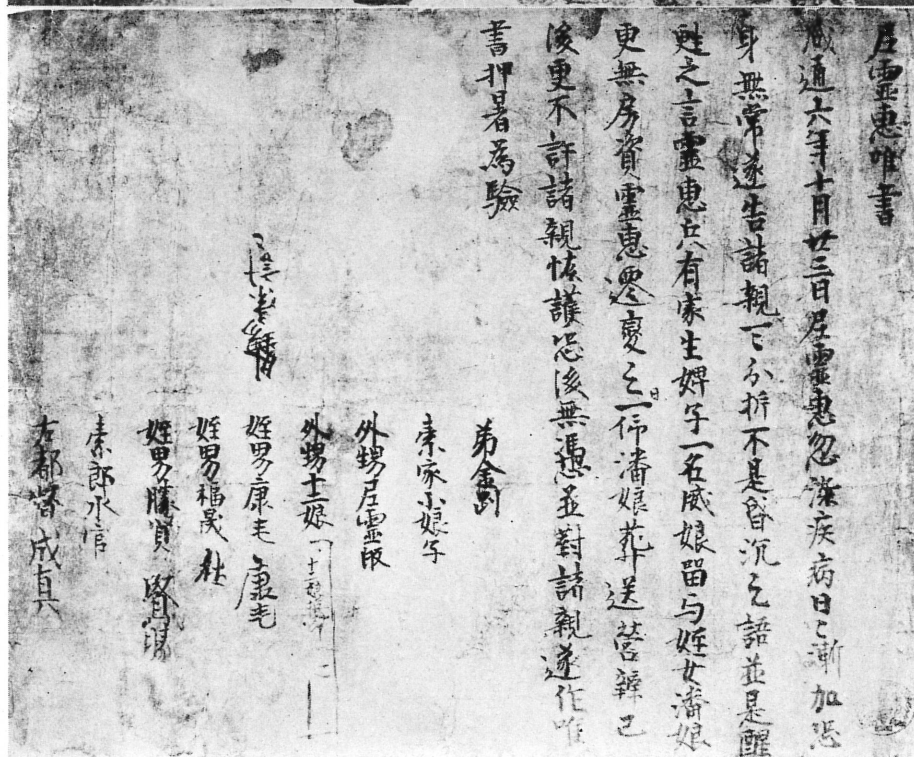 尼靈惠唯書
咸通六年十月廿三日尼靈惠忽染疾病日々漸加恐
身無常遂告諸親一々分析不是昏沉之語並是醒
甦之言靈惠只有家生婢子一名威娘留与姪女潘娘
更無房資靈惠遷變之日一仰潘娘葬送營辦已
後更不許諸親恡護恐後無憑並對諸親遂作唯
書押署為驗
弟金剛
索家小娘子
外甥尼靈皈
外甥十二娘 十二娘
姪男康毛 康毛
姪男福晟 杜
姪男勝賢 勝賢
索郎水官
左都督成真